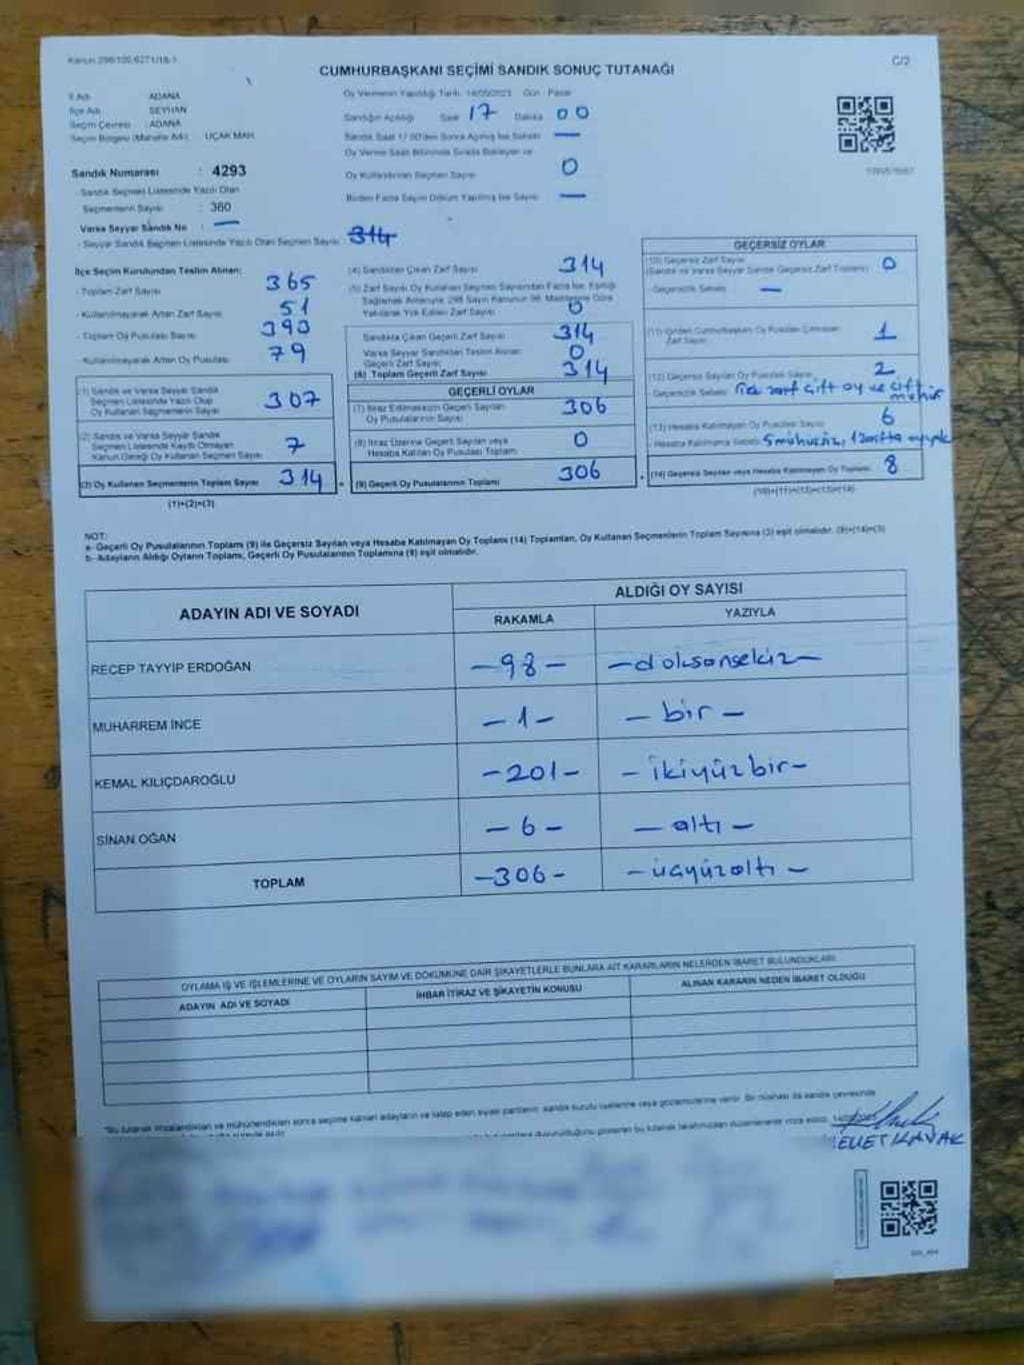 Kanun:298/100,6271/18-1
C/2
CUMHURBAŞKANI SEÇİMİ SANDIK SONUÇ TUTANAĞI
İl Adı ADANA
İlçe Adı SEYHAN
Seçim Çevresi : ADANA
Seçim Bölgesi (Mahalle Adı) UÇAK MAH.
Oy Vermenin Yapıldığı Tarih 14/05/2023 Gün : Pazar
Sandığın Açıldığı Saat 17 Dakika 00
Sandık Saat 17.00'den Sonra Açılmış İse Sebebi —
Oy Verme Saati Bitiminde Sırada Bekleyen ve
Oy Kullandırılan Seçmen Sayısı 0
Birden Fazla Sayım Döküm Yapılmış İse Sayısı —
Sandık Numarası : 4293
- Sandık Seçmen Listesinde Yazılı Olan
Seçmenlerin Sayısı : 360
Varsa Seyyar Sandık No : —
- Seyyar Sandık Seçmen Listesinde Yazılı Olan Seçmen Sayısı 314
İlçe Seçim Kurulundan Teslim Alınan:
- Toplam Zarf Sayısı 365
- Kullanılmayarak Artan Zarf Sayısı 51
- Toplam Oy Pusulası Sayısı 393
- Kullanılmayarak Artan Oy Pusulası 79
(1) Sandık ve Varsa Seyyar Sandık
Seçmen Listesinde Yazılı Olup
Oy Kullanan Seçmenlerin Sayısı 307
(2) Sandık ve Varsa Seyyar Sandık
Seçmen Listesinde Kayıtlı Olmayan
Kanun Gereği Oy Kullanan Seçmen Sayısı 7
(3) Oy Kullanan Seçmenlerin Toplam Sayısı 314
(1)+(2)=(3)
(4) Sandıktan Çıkan Zarf Sayısı 314
(5) Zarf Sayısı Oy Kullanan Seçmen Sayısından Fazla İse, Eşitliği
Sağlamak Amacıyla, 298 Sayılı Kanunun 98. Maddesine Göre
Yakılarak Yok Edilen Zarf Sayısı 0
Sandıkta Çıkan Geçerli Zarf Sayısı 314
Varsa Seyyar Sandıktan Teslim Alınan
Geçerli Zarf Sayısı 0
(6) Toplam Geçerli Zarf Sayısı 314
GEÇERLİ OYLAR
(7) İtiraz Edilmeksizin Geçerli Sayılan
Oy Pusulalarının Sayısı 306
(8) İtiraz Üzerine Geçerli Sayılan veya
Hesaba Katılan Oy Pusulası Toplamı 0
(9) Geçerli Oy Pusulalarının Toplamı 306
GEÇERSİZ OYLAR
(10) Geçersiz Zarf Sayısı
(Sandık ve Varsa Seyyar Sandık Geçersiz Zarf Toplamı) 0
Geçersizlik Sebebi —
(11) İçinden Cumhurbaşkanı Oy Pusulası Çıkmayan
Zarf Sayısı 1
(12) Geçersiz Sayılan Oy Pusulası Sayısı 2
Geçersizlik Sebebi zarf çift oy ve çift
mühür
(13) Hesaba Katılmayan Oy Pusulası Sayısı 6
Hesaba Katılmama Sebebi 5 mühürsüz, 1 zarfta
(14) Geçersiz Sayılan veya Hesaba Katılmayan Oy Toplamı 8
(10)+(11)+(12)+(13)=(14)
NOT:
a- Geçerli Oy Pusulalarının Toplamı (9) ile Geçersiz Sayılan veya Hesaba Katılmayan Oy Toplamı (14) Toplamları, Oy Kullanan Seçmenlerin Toplam Sayısına (3) eşit olmalıdır. (9)+(14)=(3)
b- Adayların Aldığı Oyların Toplamı, Geçerli Oy Pusulalarının Toplamına (9) eşit olmalıdır.
ADAYIN ADI VE SOYADI ALDIĞI OY SAYISI
RAKAMLA YAZIYLA
RECEP TAYYİP ERDOĞAN -98- -doksansekiz-
MUHARREM İNCE -1- -bir-
KEMAL KILIÇDAROĞLU -201- -ikiyüzbir-
SİNAN OĞAN -6- -altı-
TOPLAM -306- -üçyüzaltı-
OYLAMA İŞ VE İŞLEMLERİNE VE OYLARIN SAYIM VE DÖKÜMÜNE DAİR ŞİKAYETLERLE BUNLARA AİT KARARLARIN NELERDEN İBARET BULUNDUKLARI
ADAYIN ADI VE SOYADI İHBAR İTİRAZ VE ŞİKAYETİN KONUSU ALINAN KARARIN NEDEN İBARET OLDUĞU
"Bu tutanak imzalandıktan ve mühürlendikten sonra seçime katılan adayların ve talep eden siyasi partilerin sandık kurulu üyelerine veya gözlemcilerine verilir. Bir nüshası da sandık çevresinde
KAVAK